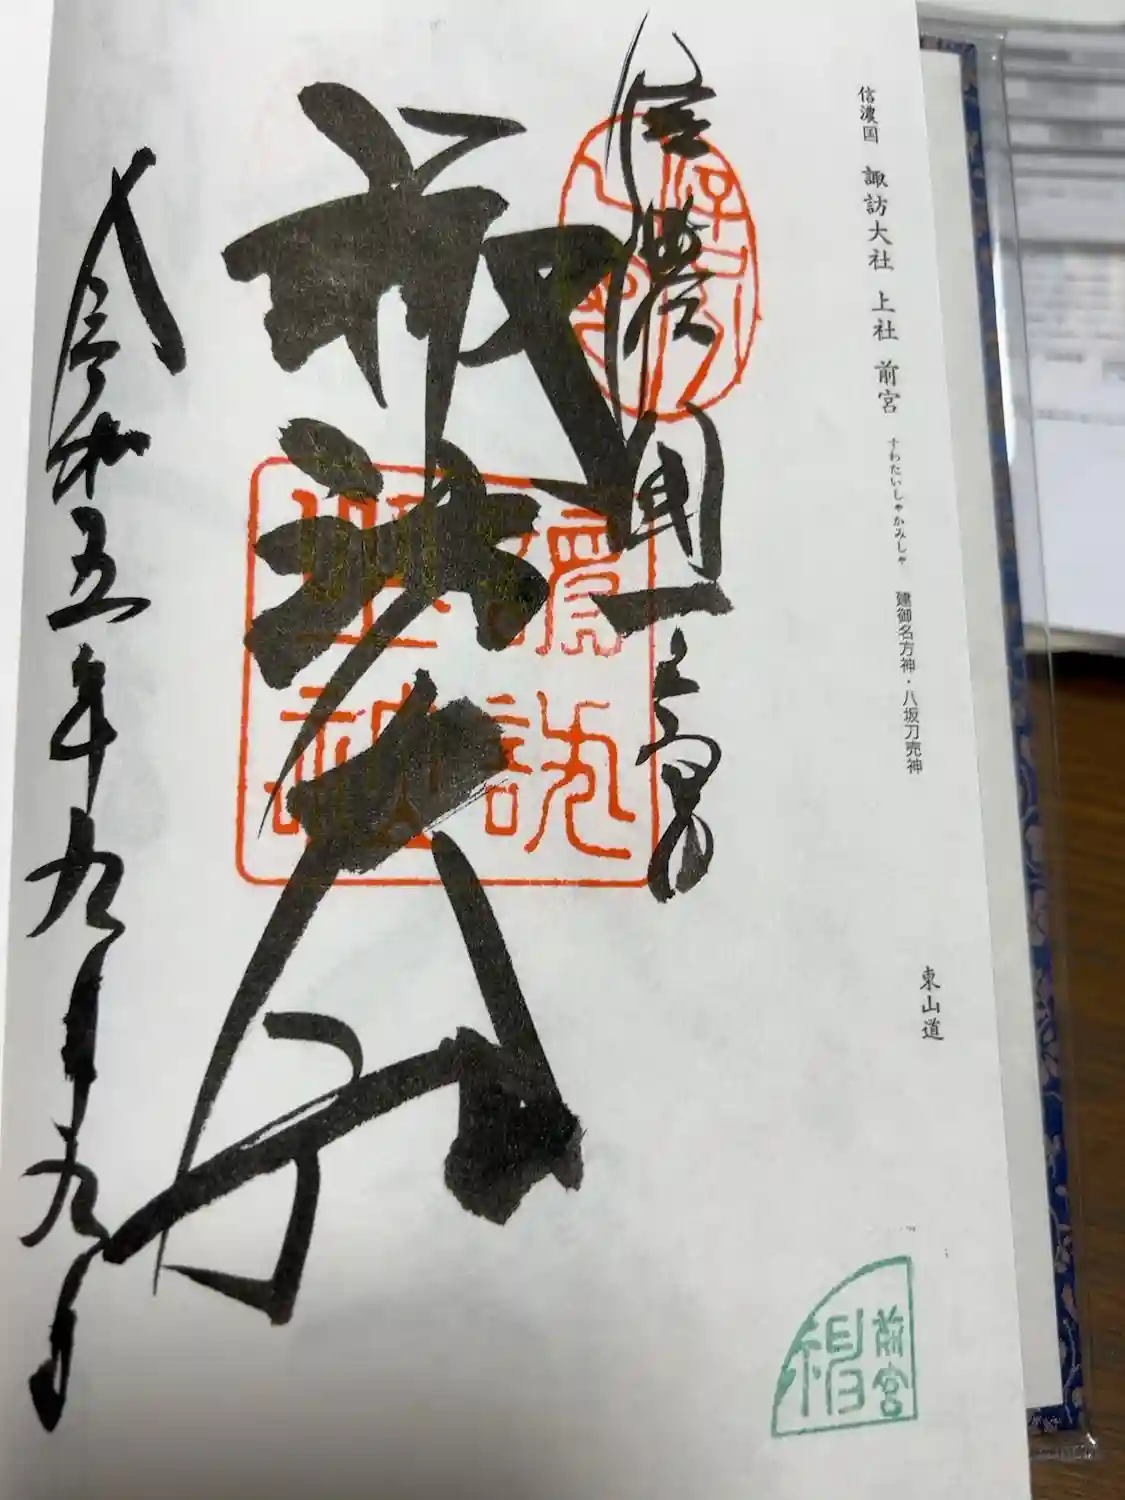 信濃国 諏訪大社 上社 前宮 すわたいしゃかみしゃ 建御名方神・八坂刀売神
東山道
信濃国一之宮
諏訪大社
令和五年九月九日
諏訪
前宮